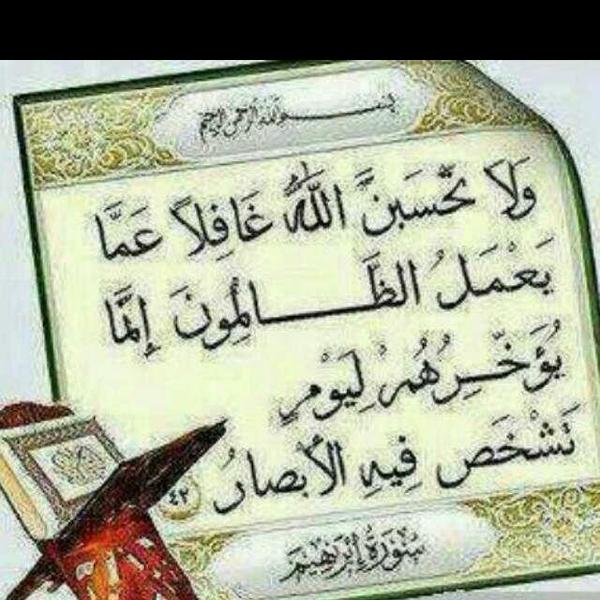 بسم الله الرحمن الرحيم
وَلَا تَحْسَبَنَّ اللَّهَ غَافِلًا عَمَّا
يَعْمَلُ الظَّـــالِمُونَ إِنَّمَا
يُؤَخِّــرُهُمْ لِيَوْمٍ
تَشْخَصُ فِيهِ الْأَبْصَارُ ٤٢
سُورَةُ إِبْرَاهِيمَ